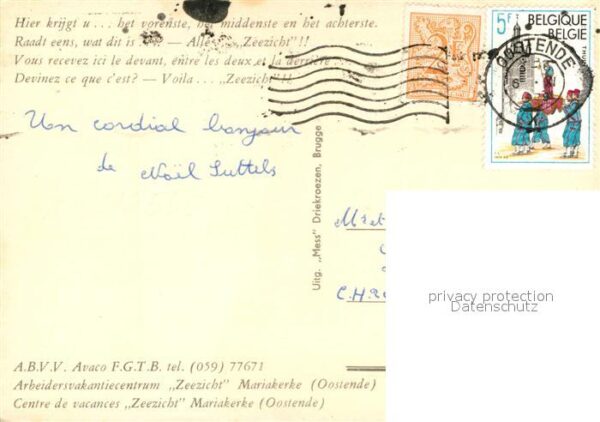 Hier krijgt u . . . het vorenste, het middenste en het achterste.
Raadt eens, wat dit is — Alles „Zeezicht"!!
Vous recevez ici le devant, entre les deux et la derrière
Devinez ce que c'est? — Voila . . . „Zeezicht"!!
5F BELGIQUE
BELGIË
OOSTENDE
Un cordial bonjour
de Noël
Uitg. „Mess" Driekroezen, Brugge
privacy protection
Datenschutz
A.B.V.V. Avaco F.G.T.B. tel. (059) 77671
Arbeidersvakantiecentrum „Zeezicht" Mariakerke (Oostende)
Centre de vacances „Zeezicht" Mariakerke (Oostende)